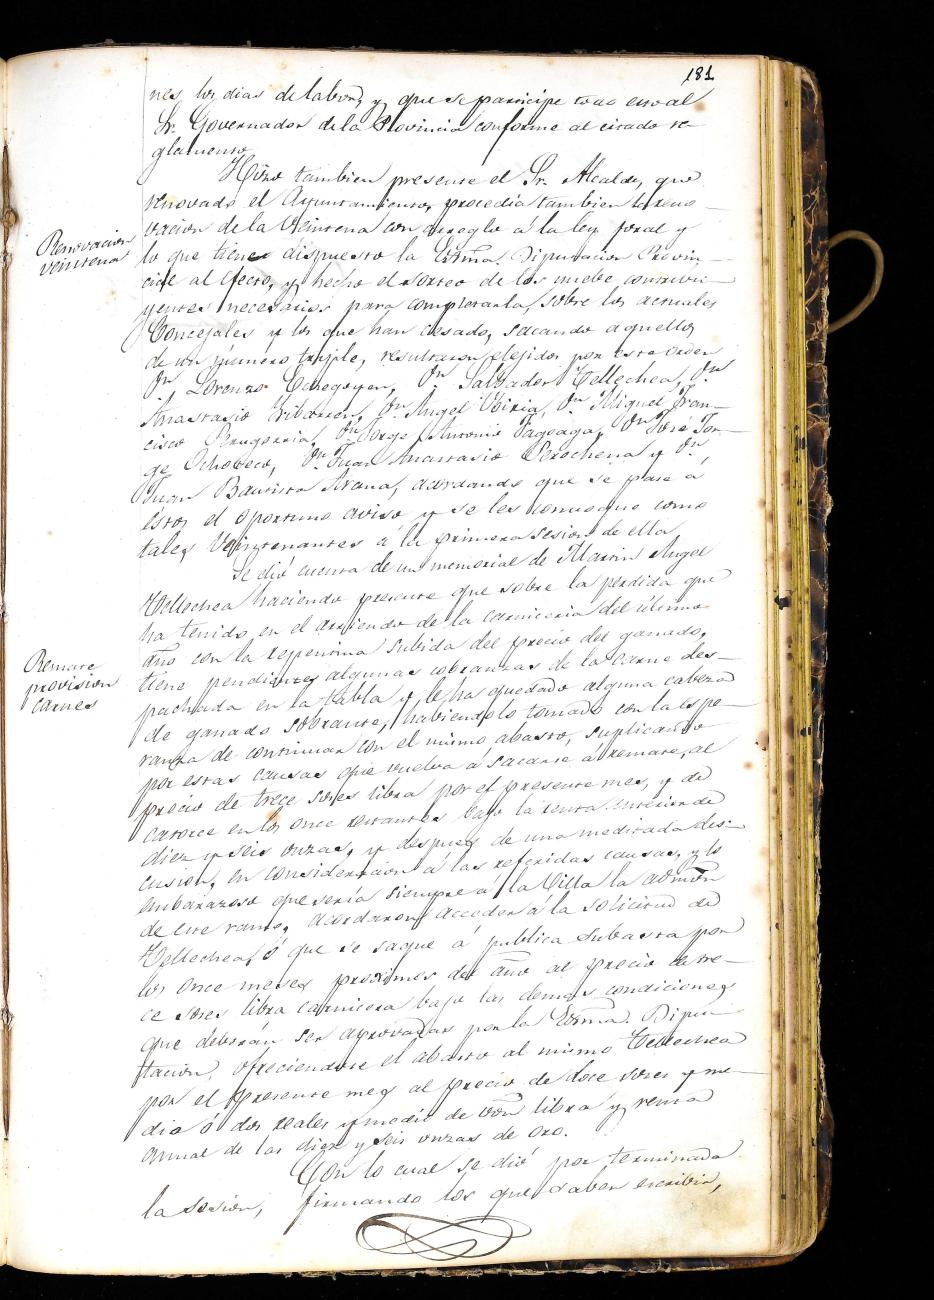 181
nes los dias de labor, y que se participe todo esto al
Sr. Governador de la Provincia conforme al citado re-
glamento.
Hizo tambien presente el Sr. Alcalde, que
renovado el Ayuntamiento, procedía tambien la reno-
Renovacion
veintena
vacion de la Veintena con arreglo á la ley foral y
lo que tiene dispuesto la Exma. Diputacion Provin-
cial al efecto, y hecho el sorteo de los nueve contribu-
yentes necesarios para completarla, sobre los actuales
Concejales y los que han cesado, sacando aquellos
de un número triple, resultaron elejidos por este orden
Dn. Lorenzo Echegoyen, Dn. Salbador Tellechea, Dn.
Anastasio Iribarren, Dn Angel Ubiria, Dn. Miguel Fran-
cisco Perugorria, Dn. Jorge Antonio Fagoaga, Dn Jose Jor-
ge Ochoteco, Dn. Juan Anastasio Perochena y Dn.
Juan Bautista Arana, acordando que se pase á
éstos el oportuno aviso y se les convoque como
tales Veintenantes á la primera sesion de ella
Se dió cuenta de un memorial de Martin Angel
Tellechea haciendo presente que sobre la perdida que
ha tenido en el arriendo de la carniceria del último
año con la repentina subida del precio del ganado,
Remate
provision
carnes
tiene pendientes algunas cobranzas de la carne des-
pachada en la tabla y le ha quedado alguna cabeza
de ganado sobrante, habiendolo tomado con la espe-
ranza de continuar con el mismo abasto, suplicando
por estas causas que vuelva a sacarse á remate, al
precio de trece sores libra por el presente mes, y de
catorce en los once restantes bajo la renta anterior de
diez y seis onzas, y despues de una meditada dis-
cusion, en consideracion á las referidas causas, y lo
embarazoso que sería siempre á la Villa la admon
de este ramo, acordaron acceder á la solicitud de
Tellechea, ó que se saque á publica subasta por
los once meses proximos del año al precio de tre-
ce sores libra carnicera bajo las demas condiciones
que deberán ser aprovadas por la Exma. Dipu-
tacion, ofreciendose el abasto al mismo Tellechea
por el presente mes al precio de doce sores y me-
dio ó dos reales y medio de von libra y renta
anual de las diez y seis onzas de oro.
Con lo cual se dió por terminada
la sesion, firmando los que saben escribir,